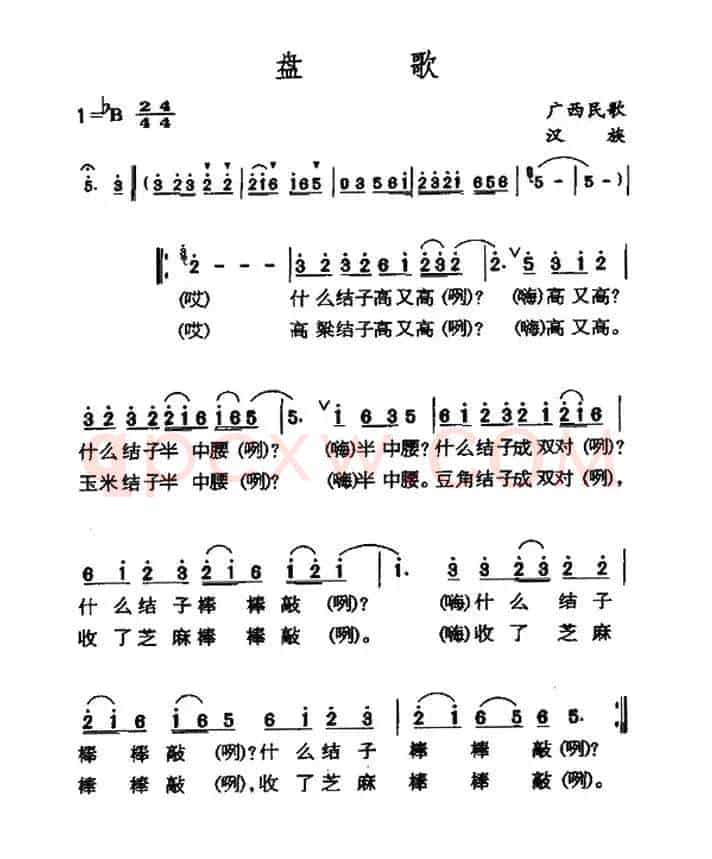 盘 歌
1=♭B 2/4 4/4
广西民歌
汉 族
5. 3 ‖ (3 23 2 2 | 216 165 | 035 561 | 2321 656 | 5 - | 5 - )
‖: 2 - - - | 3 2 32 6 1 232 | 2. ∨ 5 3 1 2 |
(哎) 什么结子高又高(咧)? (嗨)高又高?
(哎) 高粱结子高又高(咧)? (嗨)高又高。
3 2 32 216 165 | 5. ∨ 1 6 35 | 61 232 1 216 |
什么结子半 中腰(咧)? (嗨)半中腰? 什么结子成双对(咧)?
玉米结子半 中腰(咧)? (嗨)半中腰。豆角结子成双对(咧),
6 1 2 3 21 6 121 | 1. 3 3 23 2
什么结子棒 棒敲(咧)? (嗨)什么 结子
收了芝麻棒 棒敲(咧)。 (嗨)收了 芝麻
21 6 165 6 1 2 3 | 2 1 6 5 6 5. :‖
棒 棒敲 (咧)?什么结子 棒 棒 敲(咧)?
棒 棒敲 (咧),收了芝麻 棒 棒 敲(咧)。
gpcxw.COM